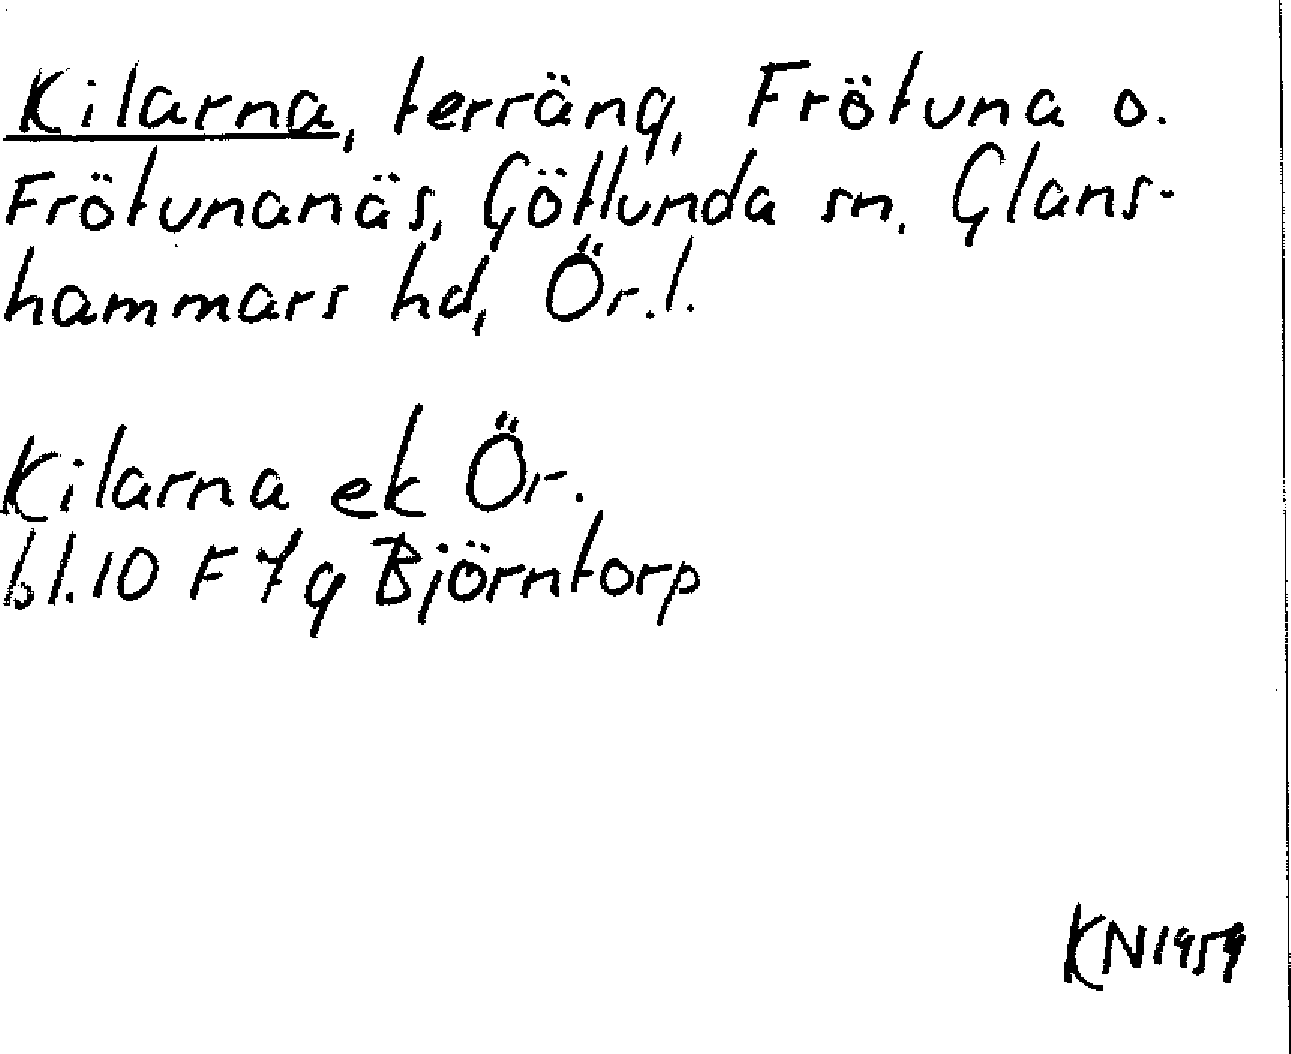 Kilarna, terräng, Frötuna o.
Frötunanäs, Götlunda sn. Glans-
hammars hd, Ör.l.
Kilarna ek Ör.
bl.10 F 7 g Björntorp
KN1959